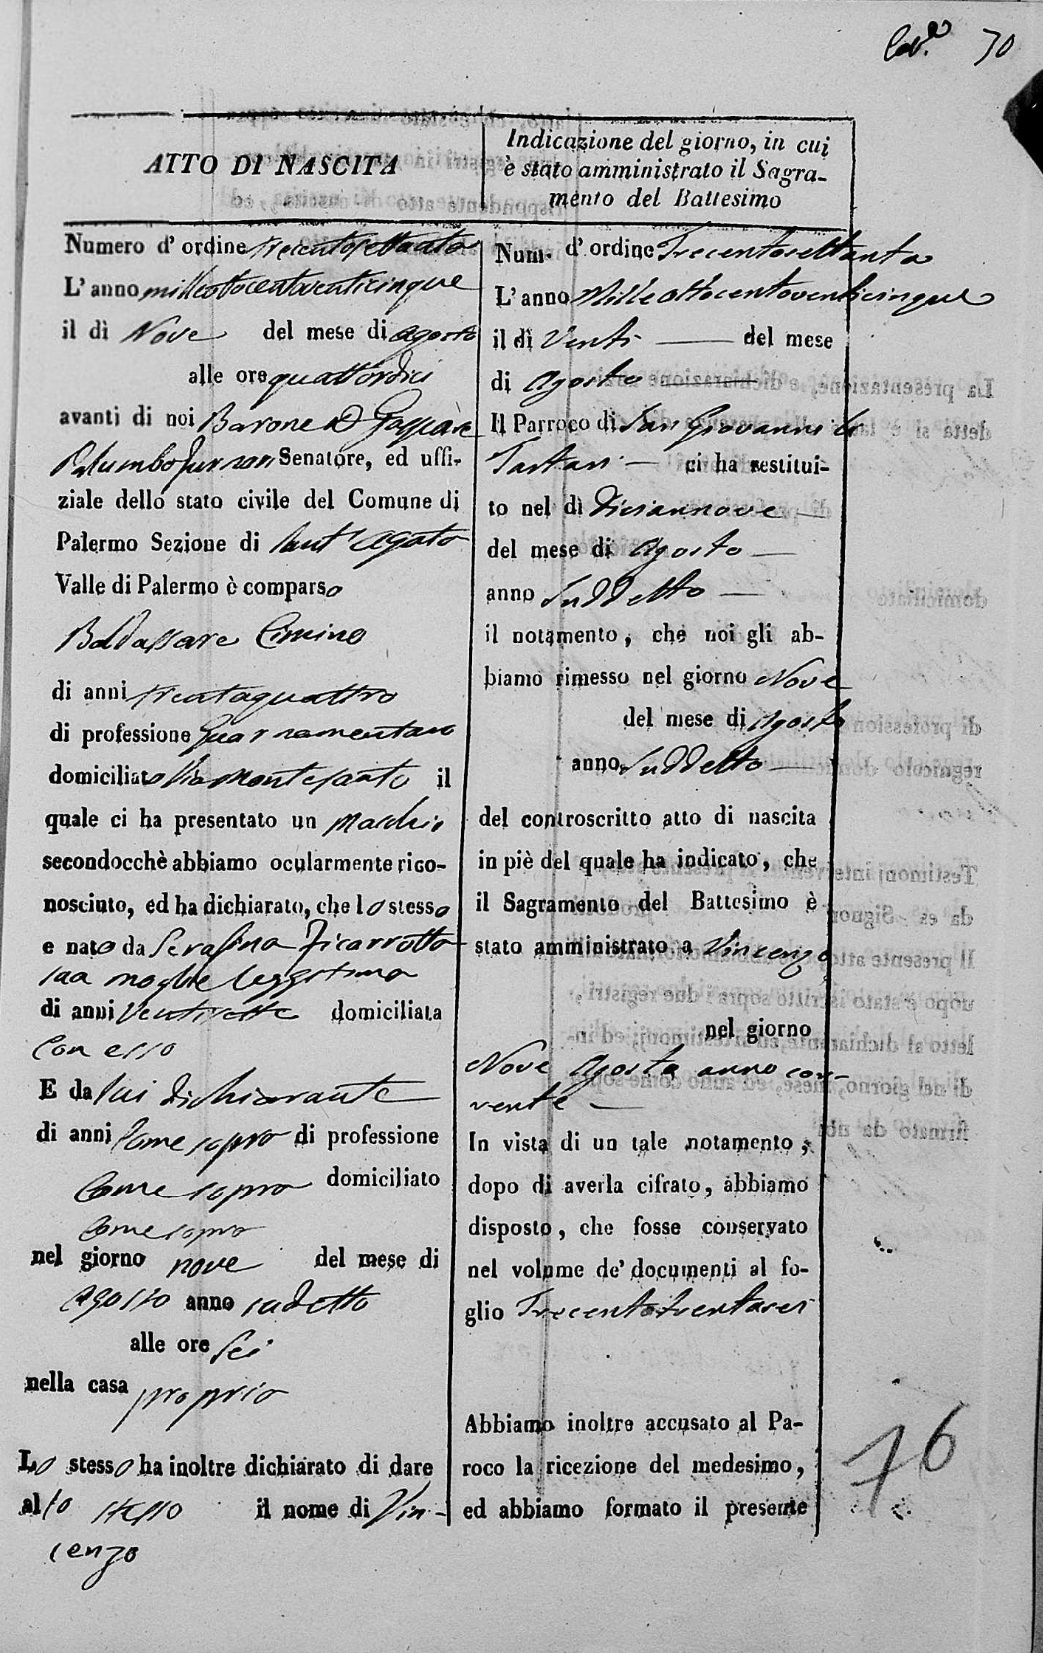 70
ATTO DI NASCITA
Numero d' ordine trecentosettanta
L' anno milleottocentoventicinque
il dì Nove del mese di agosto
alle ore quattordici
avanti di noi Barone D Gaspare
Palumbo Senatore, ed uffi-
ziale dello stato civile del Comune di
Palermo Sezione di Sant' Agata
Valle di Palermo è comparso
Baldassare Cimino
di anni trentaquattro
di professione Guarnamentaro
domiciliato Via Montesanto il
quale ci ha presentato un Maschio
secondocchè abbiamo ocularmente rico-
nosciuto, ed ha dichiarato, che lo stesso
e nato da Serafina Ficarrotta
sua moglie leggitima
di anni Ventisette domiciliata
Con esso
E da lui dichiarante
di anni Come sopra di professione
Come sopra domiciliato
Come sopra
nel giorno nove del mese di
agosto anno sudetto
alle ore Sei
nella casa propria
Lo stesso ha inoltre dichiarato di dare
allo stesso il nome di Vin-
cenzo
Indicazione del giorno, in cui
è stato amministrato il Sagra-
mento del Battesimo
Num. d' ordine Trecentosettanta
L' anno Milleottocentoventicinque
il dì Venti del mese
di Agosto
Il Parroco di San Giovanni li
Tartari ci ha restitui-
to nel dì diciannove
del mese di Agosto
anno Suddetto
il notamento, che noi gli ab-
biamo rimesso nel giorno Nove
del mese di Agosto
anno Suddetto
del controscritto atto di nascita
in piè del quale ha indicato, che
il Sagramento del Battesimo è
stato amministrato a Vincenzo
nel giorno
Nove Agosto anno cor-
rente
In vista di un tale notamento,
dopo di averla cifrato, abbiamo
disposto, che fosse conservato
nel volume de' documenti al fo-
glio Trecentotrentasei
Abbiamo inoltre accusato al Pa-
roco la ricezione del medesimo,
ed abbiamo formato il presente
76